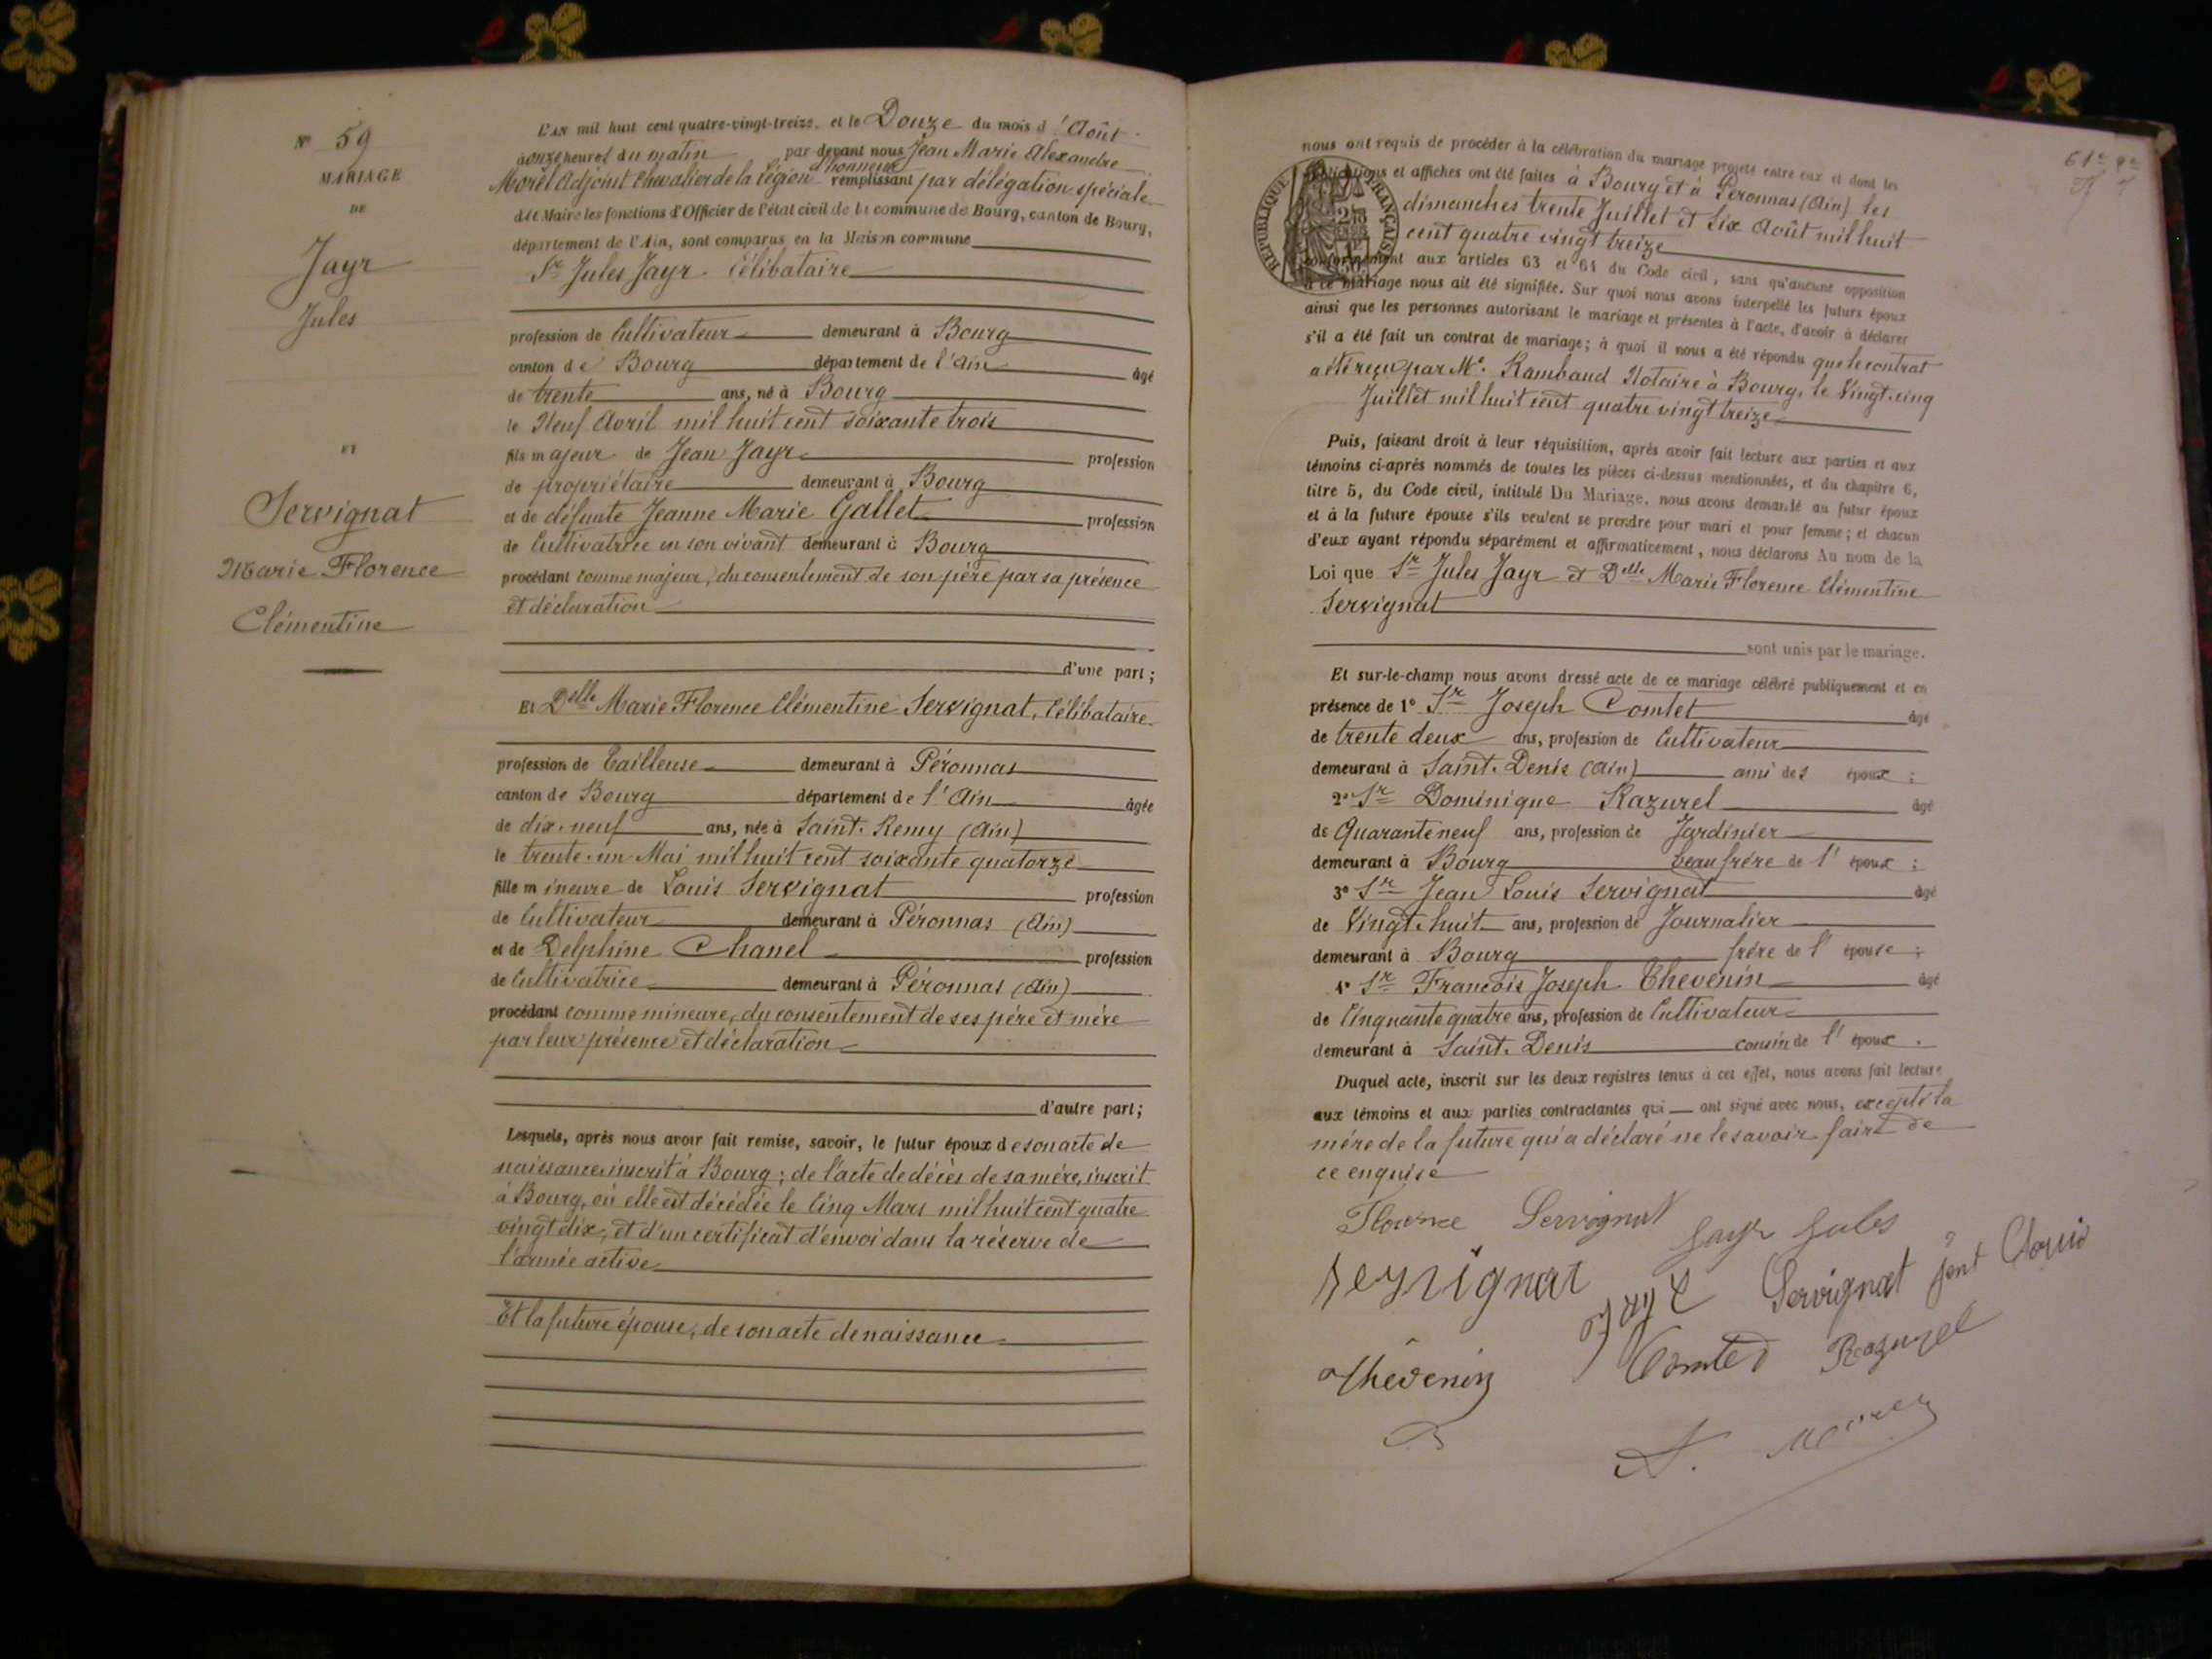 N° 59
MARIAGE
DE
Jayr
Jules
ET
Servignat
Marie Florence
Clémentine
L'AN mil huit cent quatre-vingt-treize, et le Douze du mois d'Août
à onze heures du matin par devant nous Jean Marie Alexandre
d'honneur
Morel Adjoint Chevalier de la légion remplissant par délégation spéciale
du Maire les fonctions d'Officier de l'état civil de la commune de Bourg, canton de Bourg,
département de l'Ain, sont comparus en la Maison commune
Sr Jules Jayr. Célibataire
profession de Cultivateur demeurant à Bourg
canton de Bourg département de l'Ain âgé
de trente ans, né à Bourg
le Neuf Avril mil huit cent soixante trois
fils majeur de Jean Jayr profession
de propriétaire demeurant à Bourg
et de défunte Jeanne Marie Gallet profession
de Cultivatrice en son vivant demeurant à Bourg
procédant comme majeur, du consentement de son père par sa présence
et déclaration
d'une part;
Et Delle Marie Florence Clémentine Servignat, Célibataire
profession de Tailleuse demeurant à Péronnas
canton de Bourg département de l'Ain âgée
de dix-neuf ans, née à Saint-Remy (Ain)
le trente-un Mai mil huit cent soixante quatorze
fille mineure de Louis Servignat profession
de Cultivateur demeurant à Péronnas (Ain)
et de Delphine Chanel profession
de Cultivatrice demeurant à Péronnas (Ain)
procédant comme mineure, du consentement de ses père et mère
par leur présence et déclaration
d'autre part;
Lesquels, après nous avoir fait remise, savoir, le futur époux de son acte de
naissance inscrit à Bourg; de l'acte de décès de sa mère, inscrit
à Bourg, où elle est décédée le Cinq Mars mil huit cent quatre
vingt dix, et d'un certificat d'envoi dans la réserve de
l'armée active
Et la future épouse, de son acte de naissance
61e
nous ont requis de procéder à la célébration du mariage projeté entre eux et dont les
publications et affiches ont été faites à Bourg et à Péronnas (Ain) les
dimanches trente Juillet et Six Août mil huit
cent quatre vingt treize
RÉPUBLIQUE FRANÇAISE
conformément aux articles 63 et 64 du Code civil, sans qu'aucune opposition
à ce mariage nous ait été signifiée. Sur quoi nous avons interpellé les futurs époux
ainsi que les personnes autorisant le mariage et présentes à l'acte, d'avoir à déclarer
s'il a été fait un contrat de mariage; à quoi il nous a été répondu que le contrat
a été reçu par Me. Rambaud Notaire à Bourg, le Vingt-cinq
Juillet mil huit cent quatre vingt treize
Puis, faisant droit à leur réquisition, après avoir fait lecture aux parties et aux
témoins ci-après nommés de toutes les pièces ci-dessus mentionnées, et du chapitre 6,
titre 5, du Code civil, intitulé Du Mariage, nous avons demandé au futur époux
et à la future épouse s'ils veulent se prendre pour mari et pour femme; et chacun
d'eux ayant répondu séparément et affirmativement, nous déclarons Au nom de la
Loi que Sr Jules Jayr et Delle Marie Florence Clémentine
Servignat
sont unis par le mariage.
Et sur-le-champ nous avons dressé acte de ce mariage célébré publiquement et en
présence de 1° Sr Joseph Comtet âgé
de trente deux ans, profession de Cultivateur
demeurant à Saint-Denis (Ain) ami des époux;
2° Sr Dominique Razurel âgé
de Quarante neuf ans, profession de Jardinier
demeurant à Bourg beau frère de l'époux;
3° Sr Jean Louis Servignat âgé
de Vingt-huit ans, profession de Journalier
demeurant à Bourg frère de l'épouse;
4° Sr François Joseph Thevenin âgé
de Cinquante quatre ans, profession de Cultivateur
demeurant à Saint-Denis cousin de l'époux.
Duquel acte, inscrit sur les deux registres tenus à cet effet, nous avons fait lecture
aux témoins et aux parties contractantes qui ont signé avec nous, excepté la
mère de la future qui a déclaré ne le savoir faire de
ce enquise
Florence Servignat Jayr Jules
Servignat Jayr Servignat Jean Louis
Thevenin Comtet Razurel
A. Morel